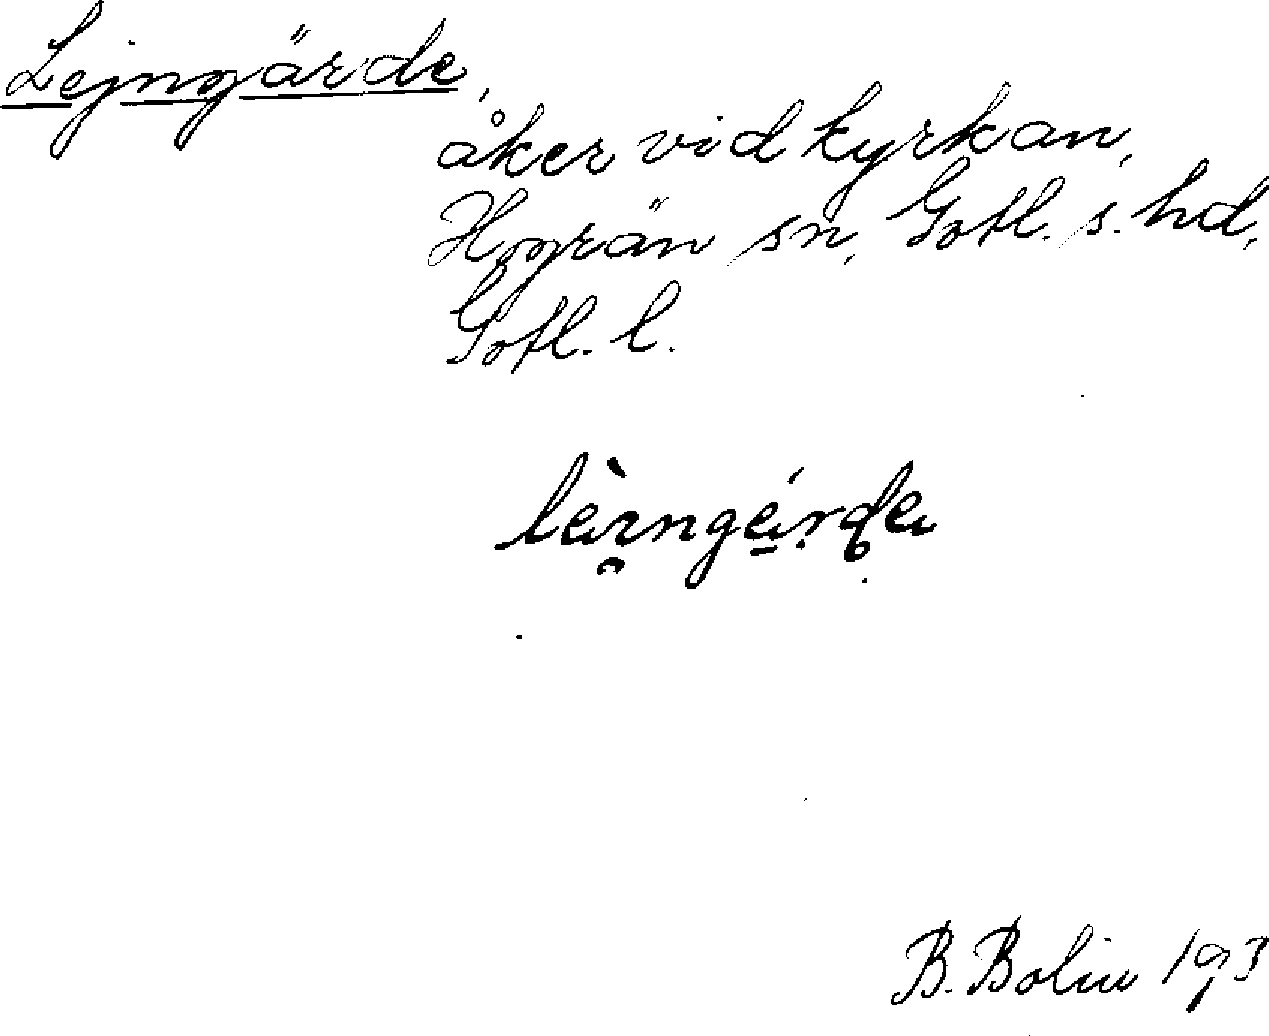 Lejngärde,
åker vid kyrkan,
Hogrän sn, Gotl. s. hd,
Gotl. l.
B. Bolin 193